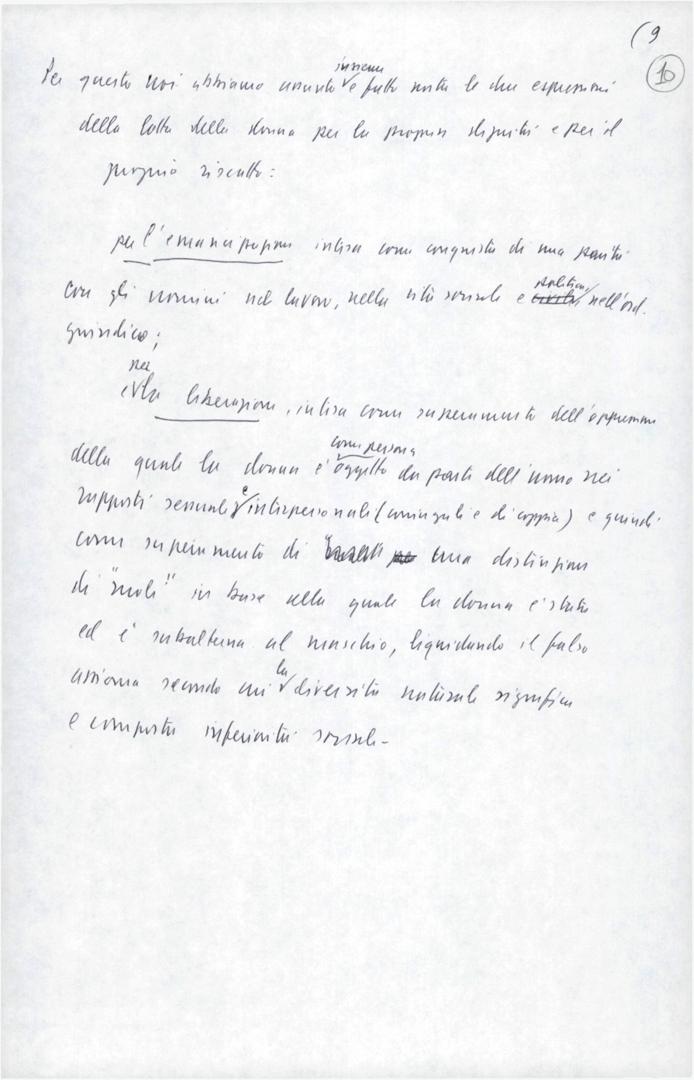 (9
10
insieme
Per questo noi abbiamo assunto e fatto nostre le due espressioni
della lotta della donna per la propria dignità e per il
proprio riscatto:
per l'emancipazione intesa come conquista di una parità
politica,
con gli uomini nel lavoro, nella vita sociale e civile nell'ord.
giuridico;
per
e la liberazione, intesa come superamento dell'oppressione
come persona
della quale la donna è oggetto da parte dell'uomo nei
rapporti sessuali e interpersonali (coniugali e di coppia) e quindi
come superamento di una distinzione
di "ruoli" in base alla quale la donna è stata
ed è subalterna al maschio, liquidando il falso
la
assioma secondo cui diversità naturale significa
e comporta inferiorità sociale-